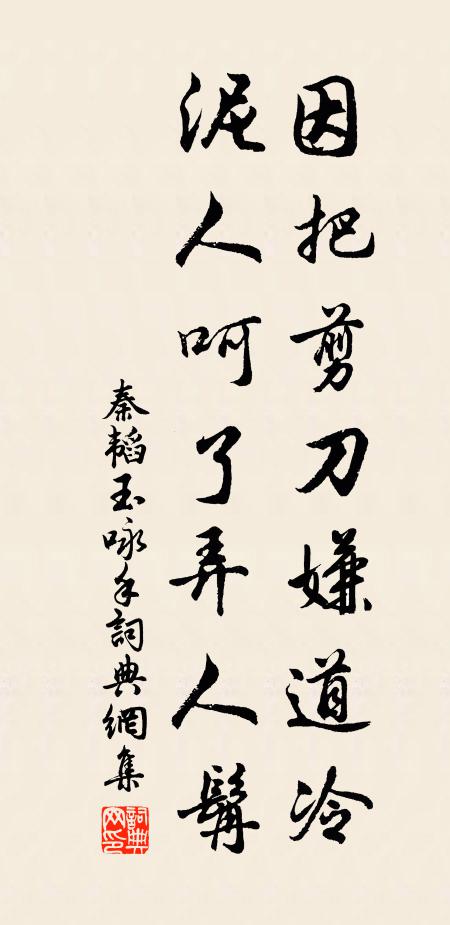 因把剪刀嫌道冷
泥人呵了弄人髯
秦韜玉咏手詞典網集
詞典網印